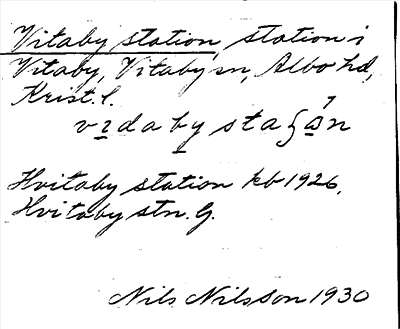 Vitaby station, station i
Vitaby, Vitaby sn, Albo hd,
Krist. l.
vidaby sta
Hvitaby station kb 1926.
Hvitaby stn. G.
Nils Nilsson 1930